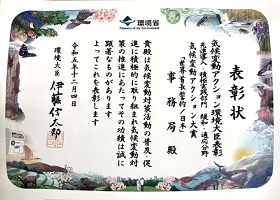 環境省
Ministry of the Environment
表彰状
気候変動アクション環境大臣表彰
先進導入・積極実践部門 緩和・適応分野
気候変動アクション大賞
事務局殿
貴殿は気候変動対策活動の普及・促
進に積極的に取り組まれ気候変動対
策の推進にあたってその功績は誠に
顕著なものがあります
よってこれを表彰します
令和五年十二月四日
環境大臣
伊藤信太郎